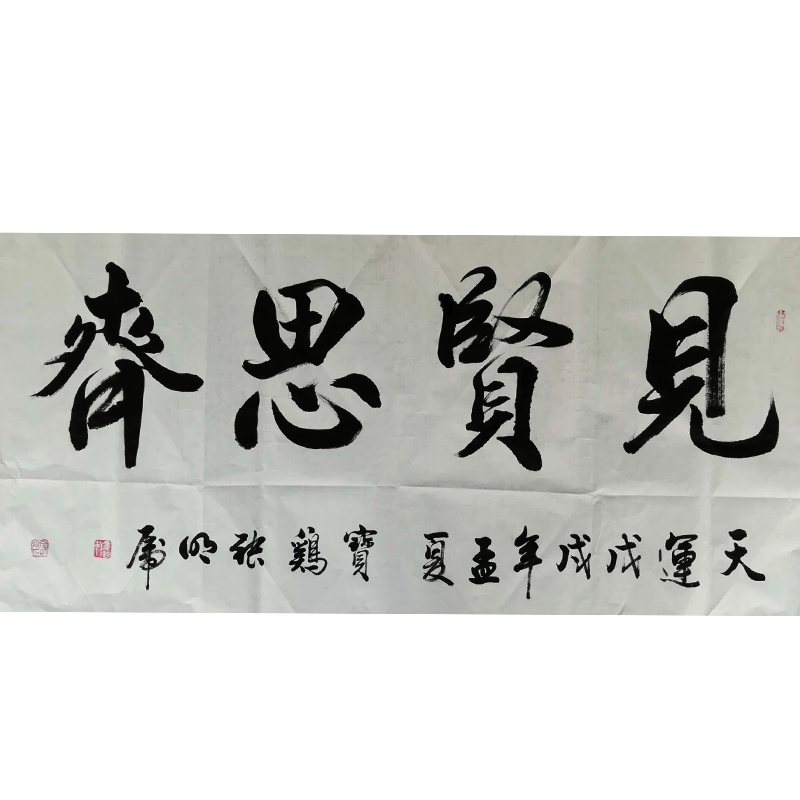 見賢思齊
天運戊戌年孟夏 寶鷄張明虎